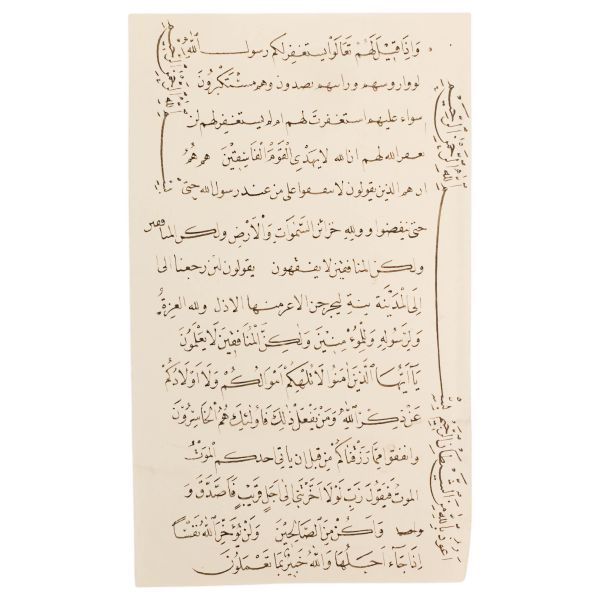 واذا قيل لهم تعالوا يستغفر لكم رسول الله
لووا روسهم ورايتهم يصدون وهم مستكبرون
سواء عليهم استغفرت لهم ام لم يستغفر لهم لن
يغفر الله لهم ان الله لا يهدي القوم الفاسقين هم هم
ان هم الذين يقولون لا تنفقوا على من عند رسول الله حتى
حتى ينفضوا و ولله خزائن السموات والارض ولكن المنافقين
ولكن المنافقين لا يفقهون يقولون لئن رجعنا الى
الى المدينة ينة ليخرجن الاعز منها الاذل ولله العزة
ولرسوله وللمومنين ولكن المنافقين لا يعلمون
يا ايها الذين امنوا لا تلهكم اموالكم ولا اولادكم
عن ذكر الله ومن يفعل ذلك فاولئك هم الخاسرون
وانفقوا مما رزقناكم من قبل ان ياتي احدكم الموت
الموت فيقول رب لولا اخرتني الى اجل قريب فاصدق و
واكن من الصالحين ولن يؤخر الله نفسا
اذا جاء اجلها والله خبير بما تعملون
الله الرحمن الرحيم
اعوذ بالله من الشيطان الرجيم